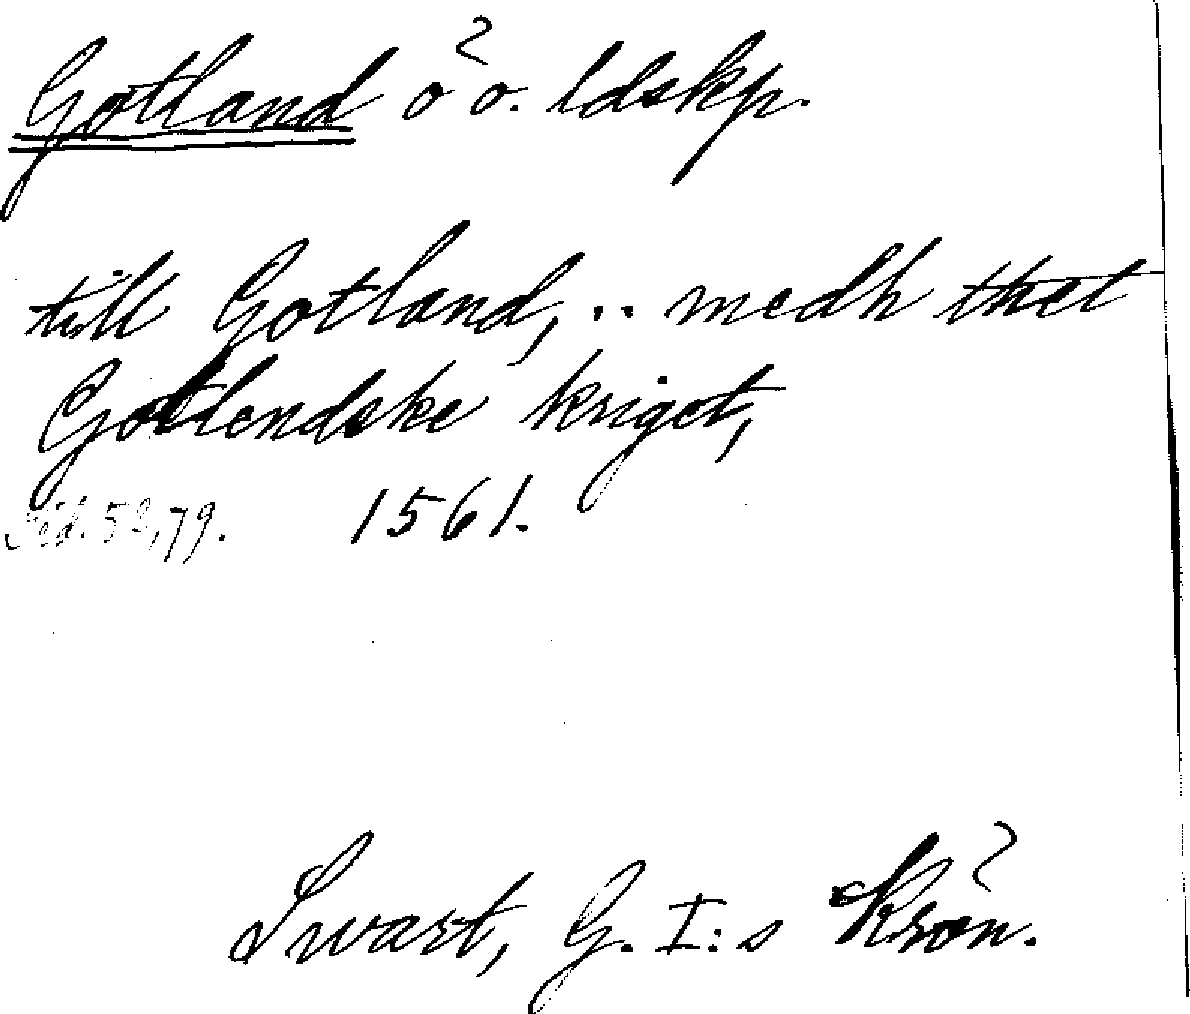 Gotland ö o. ldskp.
till Gotland, .. medh thet
Gotlendske kriget,
Sid. 52, 79. 1561.
Swart, G. I:s Krön.